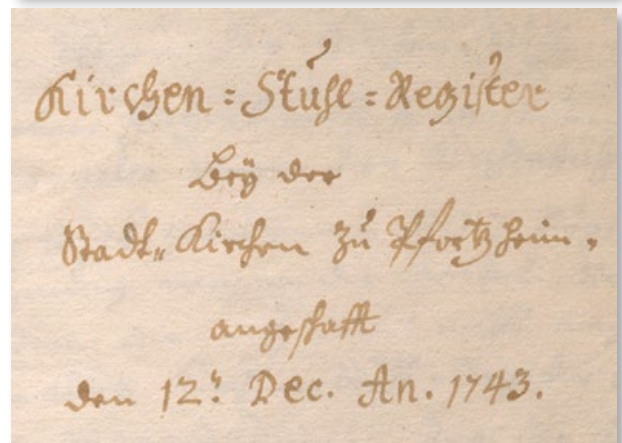 Kirchen=Stuhl=Register
Beÿ der
Stadt=Kirchen zu Pfortzheim.
angeschafft
den 12.ᵗ Dec. An. 1743.